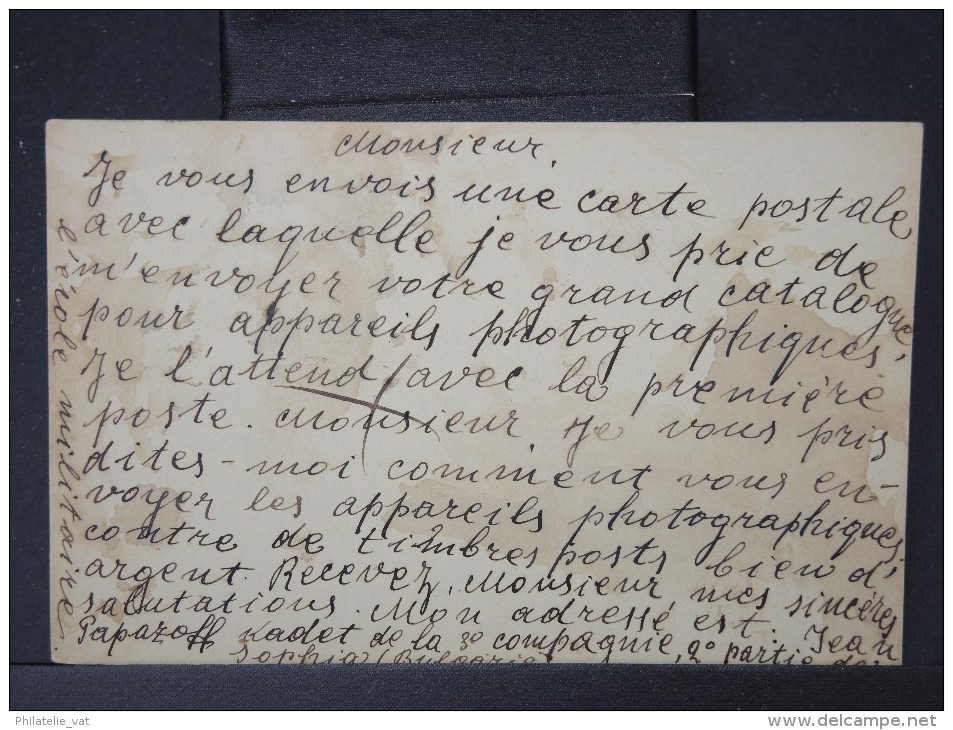 Monsieur.
Je vous envois une carte postale
avec laquelle je vous prie de
m'envoyer votre grand catalogue,
pour appareils photographiques.
Je l'attend avec la première
poste. Monsieur, Je vous pris
dites-moi comment vous en-
voyer les appareils photographiques,
contre de timbres posts bien d'
argent. Recevez, Monsieur mes sincéres
salutations. Mon adressé est: Jean
Papazoff kadet de la 3º compagnie, 2º partie de
Sophia (Bulgarie)
l'école militaire.
Philatelie_vat
www.delcampe.net